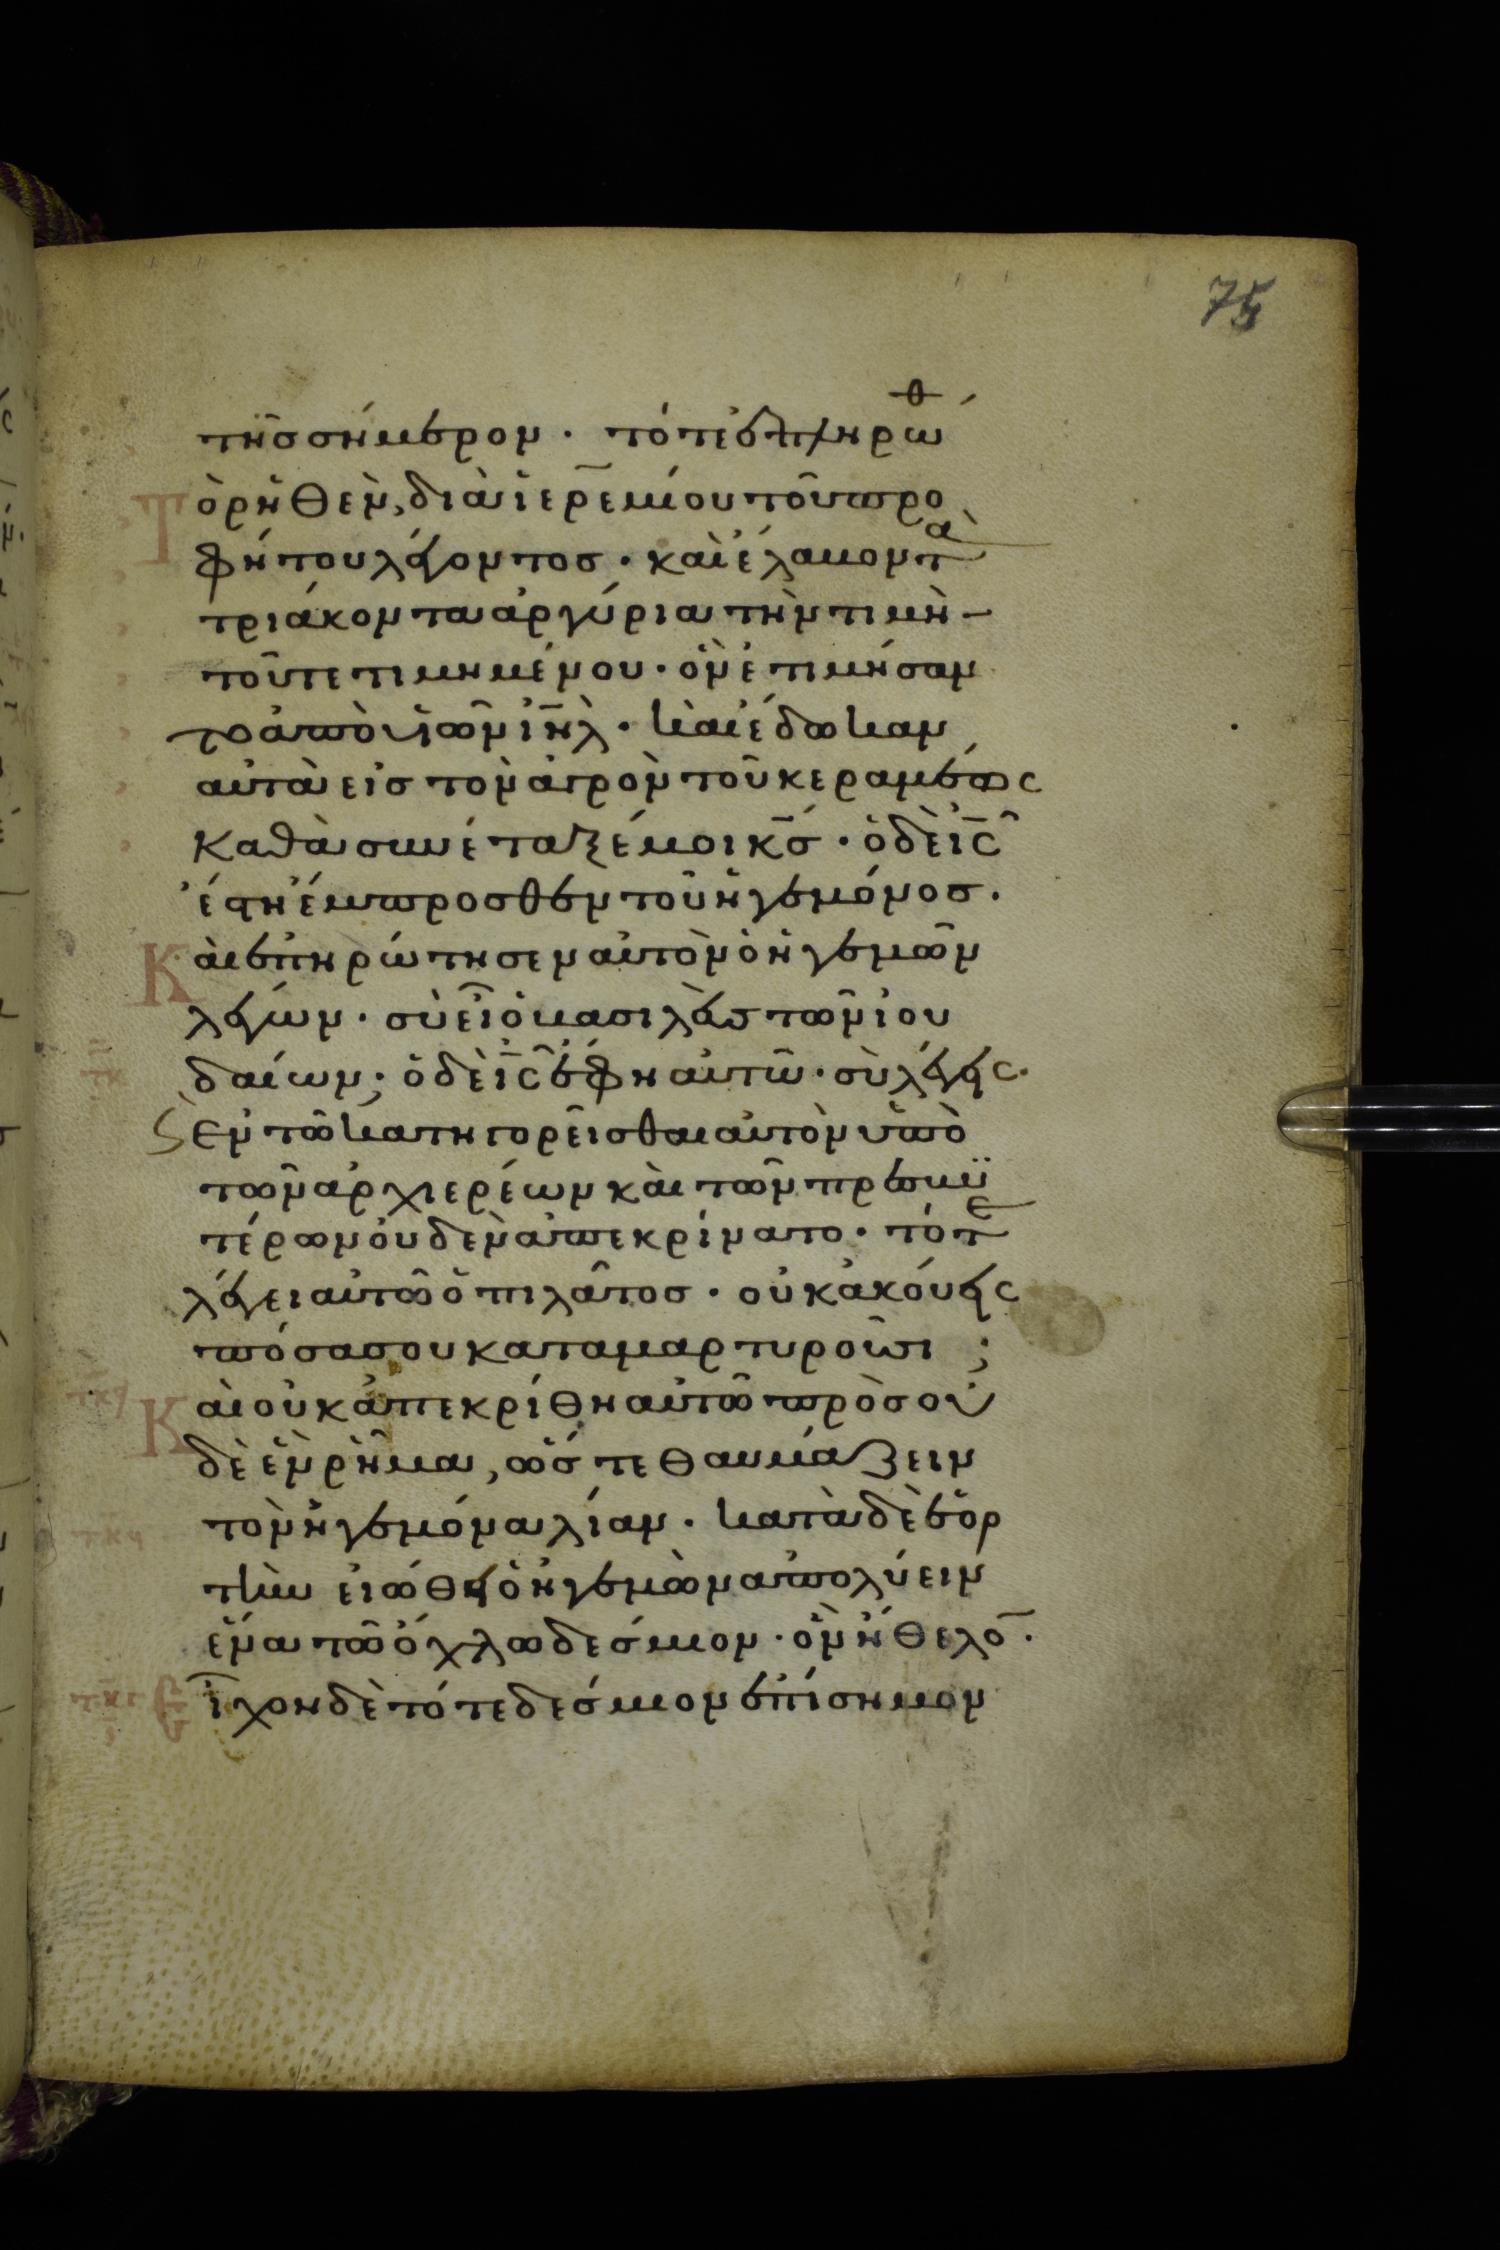 75
τῆς σήμερον · τότε ἐπληρώθ
ὁ ρηθὲν, διὰ ἱερεμίου τοῦ προ
φήτου λέγοντος · καὶ ἔλαβον τὰ
τριάκοντα ἀργύρια τὴν τιμὴν
τοῦ τετιμημένου · ὃν ἐτιμήσαν
το ἀπὸ υἱῶν ιῆλ · καὶ ἔδωκαν
αὐτὰ εἰς τὸν ἀγρὸν τοῦ κεραμέως
καθὰ συνέταξέ μοι κς · ὁ δὲ ις
ἔστη ἔμπροσθεν τοῦ ἡγεμόνος ·
Καὶ ἐπηρώτησεν αὐτὸν ὁ ἡγεμὼν
λέγων · σὺ εἶ ὁ βασιλεὺς τῶν ἰου
δαίων; ὁ δὲ ις ἔφη αὐτῶ · σὺ λέγεις ·
Ἐν τῶ κατηγορεῖσθαι αὐτὸν ὑπὸ
τῶν ἀρχιερέων καὶ τῶν πρεσβυ
τέρων οὐδὲν ἀπεκρίνατο · τότε
λέγει αὐτῶ ὁ πιλᾶτος · οὐκ ἀκούεις
πόσα σου καταμαρτυροῦσι ;
Καὶ οὐκ ἀπεκρίθη αὐτῶ πρὸς οὐ
δὲ ἓν ρῆμα, ὥστε θαυμάζειν
τὸν ἡγεμόνα λίαν · κατὰ δὲ ἑορ
τὴν εἰώθει ὁ ἡγεμὼν ἀπολύειν
ἕνα τῶ ὄχλω δέσμιον · ὃν ἤθελον ·
Εἶχον δὲ τότε δέσμιον ἐπίσημον